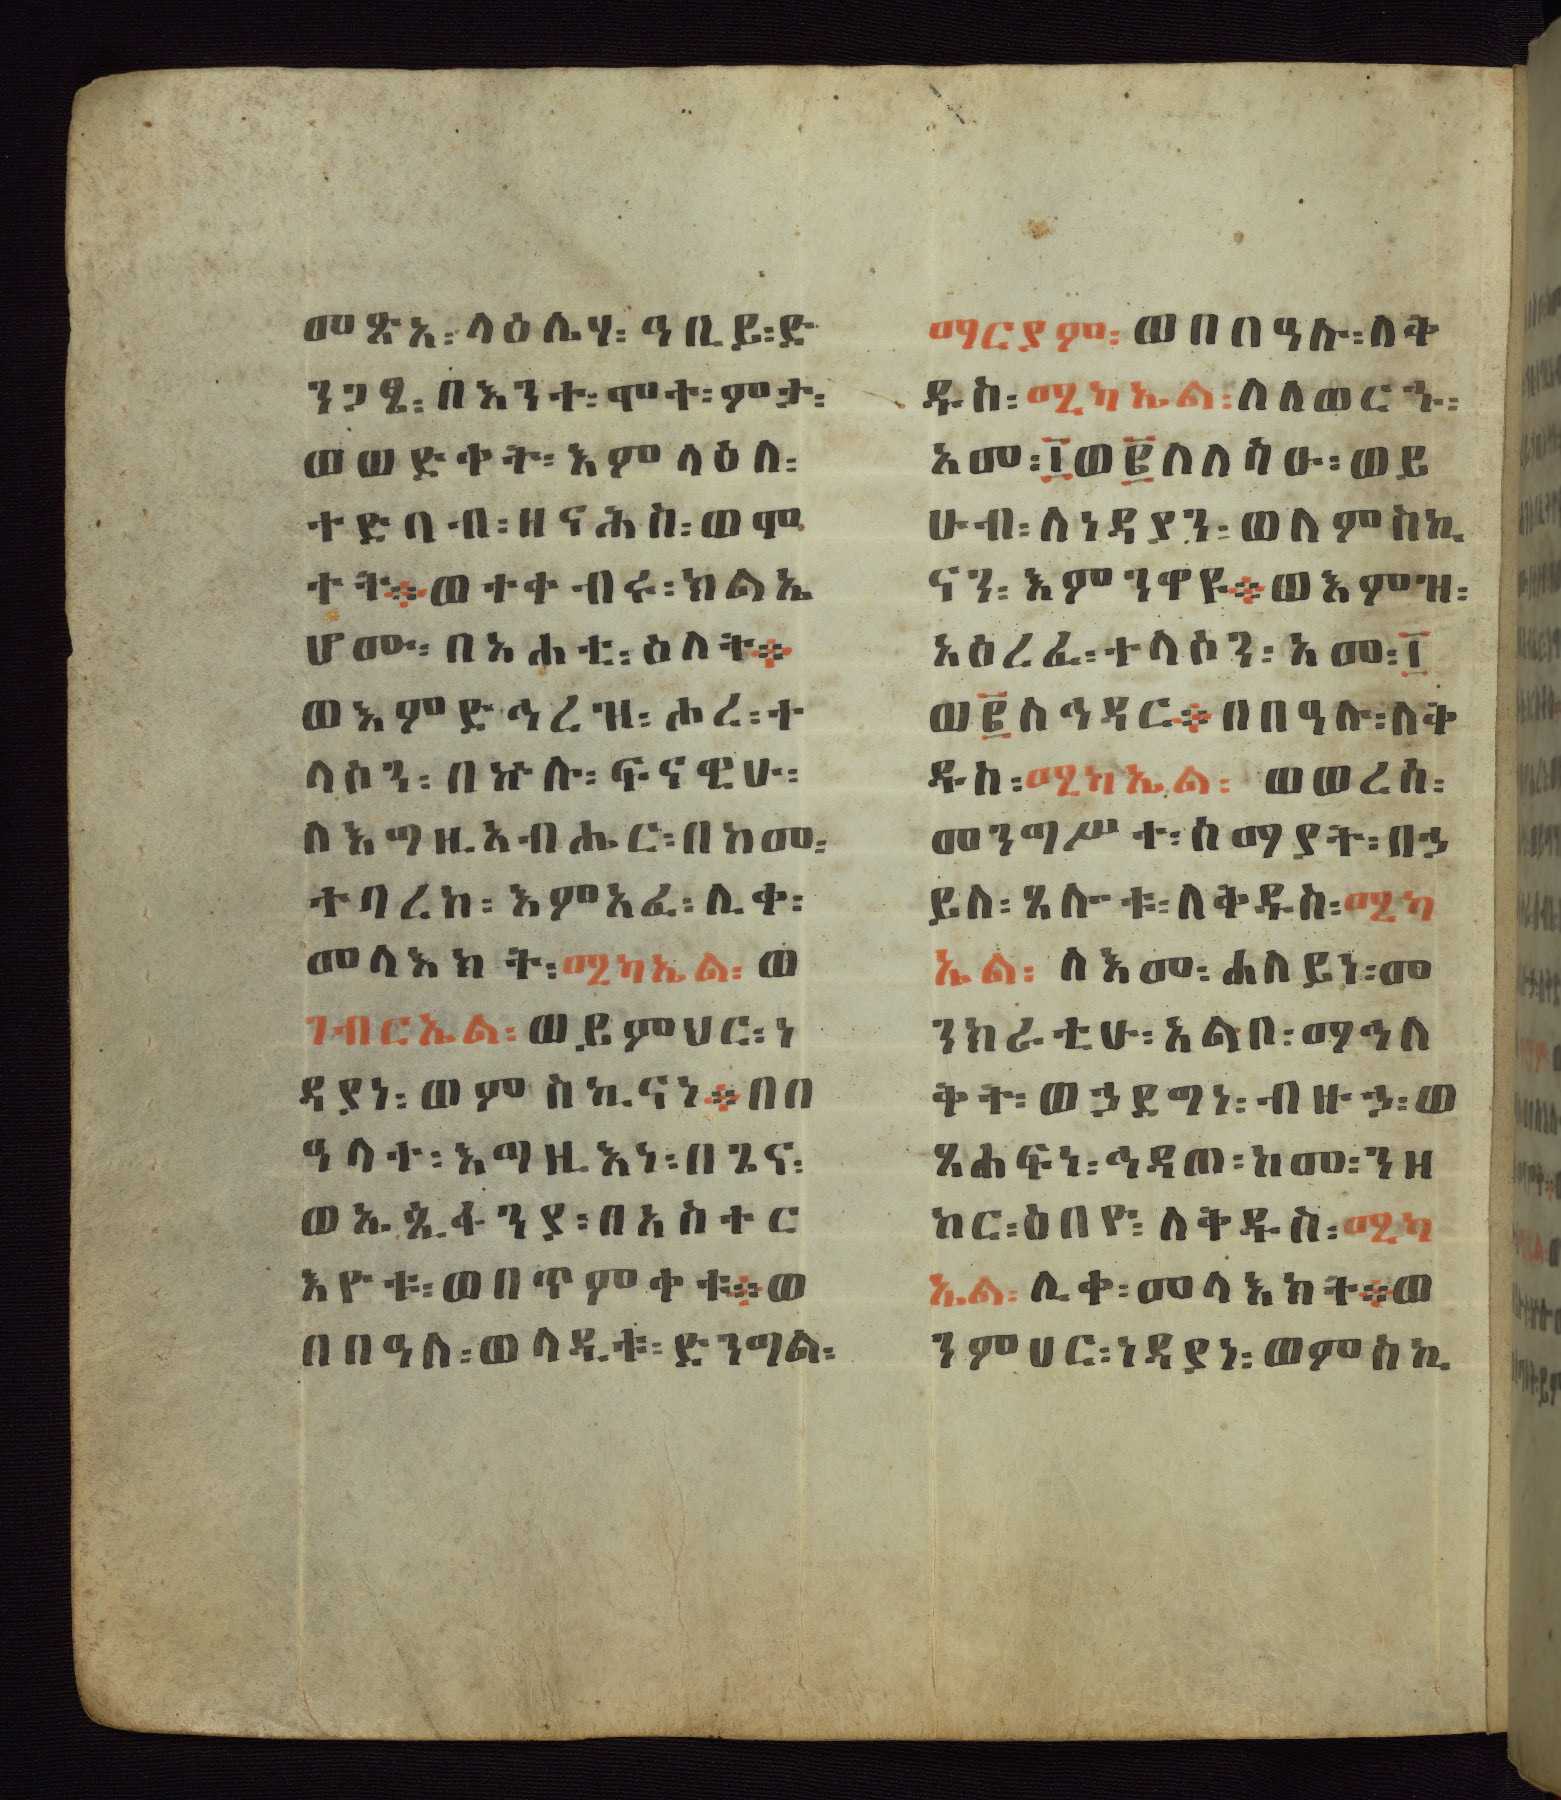 መጽአ፡ ላዕሌሃ፡ ዓቢይ፡ ድ
ንጋፄ፡ በእንተ፡ ሞተ፡ ምታ፡
ወወድቀት፡ እምላዕለ፡
ተድባብ፡ ዘናሕስ፡ ወሞ
ተት፨ ወተቀብሩ፡ ክልኤ
ሆሙ፡ በአሐቲ፡ ዕለት፨
ወእምድኅረዝ፡ ሖረ፡ ተ
ላስን፡ በኵሉ፡ ፍናዊሁ፡
ለእግዚአብሔር፡ በከመ፡
ተባረከ፡ እምአፈ፡ ሊቀ፡
መላእክት፡ ሚካኤል፡ ወ
ገብርኤል፡ ወይምህር፡ ነ
ዳያነ፡ ወምስኪናነ፨ በበ
ዓላተ፡ እግዚእነ፡ በጌና፡
ወኤጲፋንያ፡ በአስተር
እዮቱ፡ ወበጥምቀቱ፨ ወ
በበዓለ፡ ወላዲቱ፡ ድንግል፡
ማርያም፡ ወበበዓሉ፡ ለቅ
ዱስ፡ ሚካኤል፡ ለለወርኁ፡
አመ፡ ፲ወ፪ለለሠሁ፡ ወይ
ሁብ፡ ለነዳያን፡ ወለምስኪ
ናን፡ እምንዋዩ፨ ወእምዝ፡
አዕረፈ፡ ተላስን፡ አመ፡ ፲
ወ፪ለኅዳር፨ በበዓሉ፡ ለቅ
ዱስ፡ ሚካኤል፡ ወወረሰ፡
መንግሥተ፡ ሰማያት፡ በኃ
ይለ፡ ጸሎቱ፡ ለቅዱስ፡ ሚካ
ኤል፡ ለእመ፡ ሐለይነ፡ መ
ንክራቲሁ፡ አልቦ፡ ማኅለ
ቅት፡ ወኃደግነ፡ ብዙኃ፡ ወ
ጸሐፍነ፡ ኅዳጠ፡ ከመ፡ ንዘ
ከር፡ ዕበዮ፡ ለቅዱስ፡ ሚካ
ኤል፡ ሊቀ፡ መላእክት፨ ወ
ንምሀር፡ ነዳያነ፡ ወምስኪ